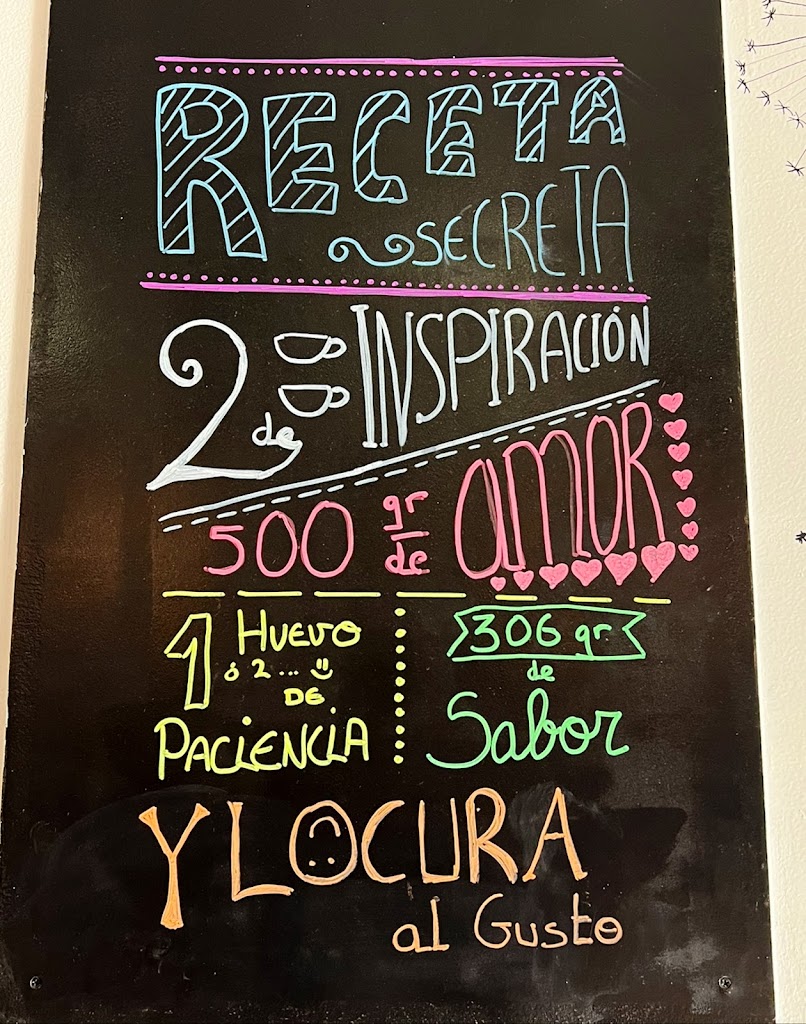 RECETA
SECRETA
2 de INSPIRACIÓN
500 gr de amor
1 HUEVO
ó 2...
DE
PACIENCIA
306 gr.
de
Sabor
Y LOCURA
al Gusto